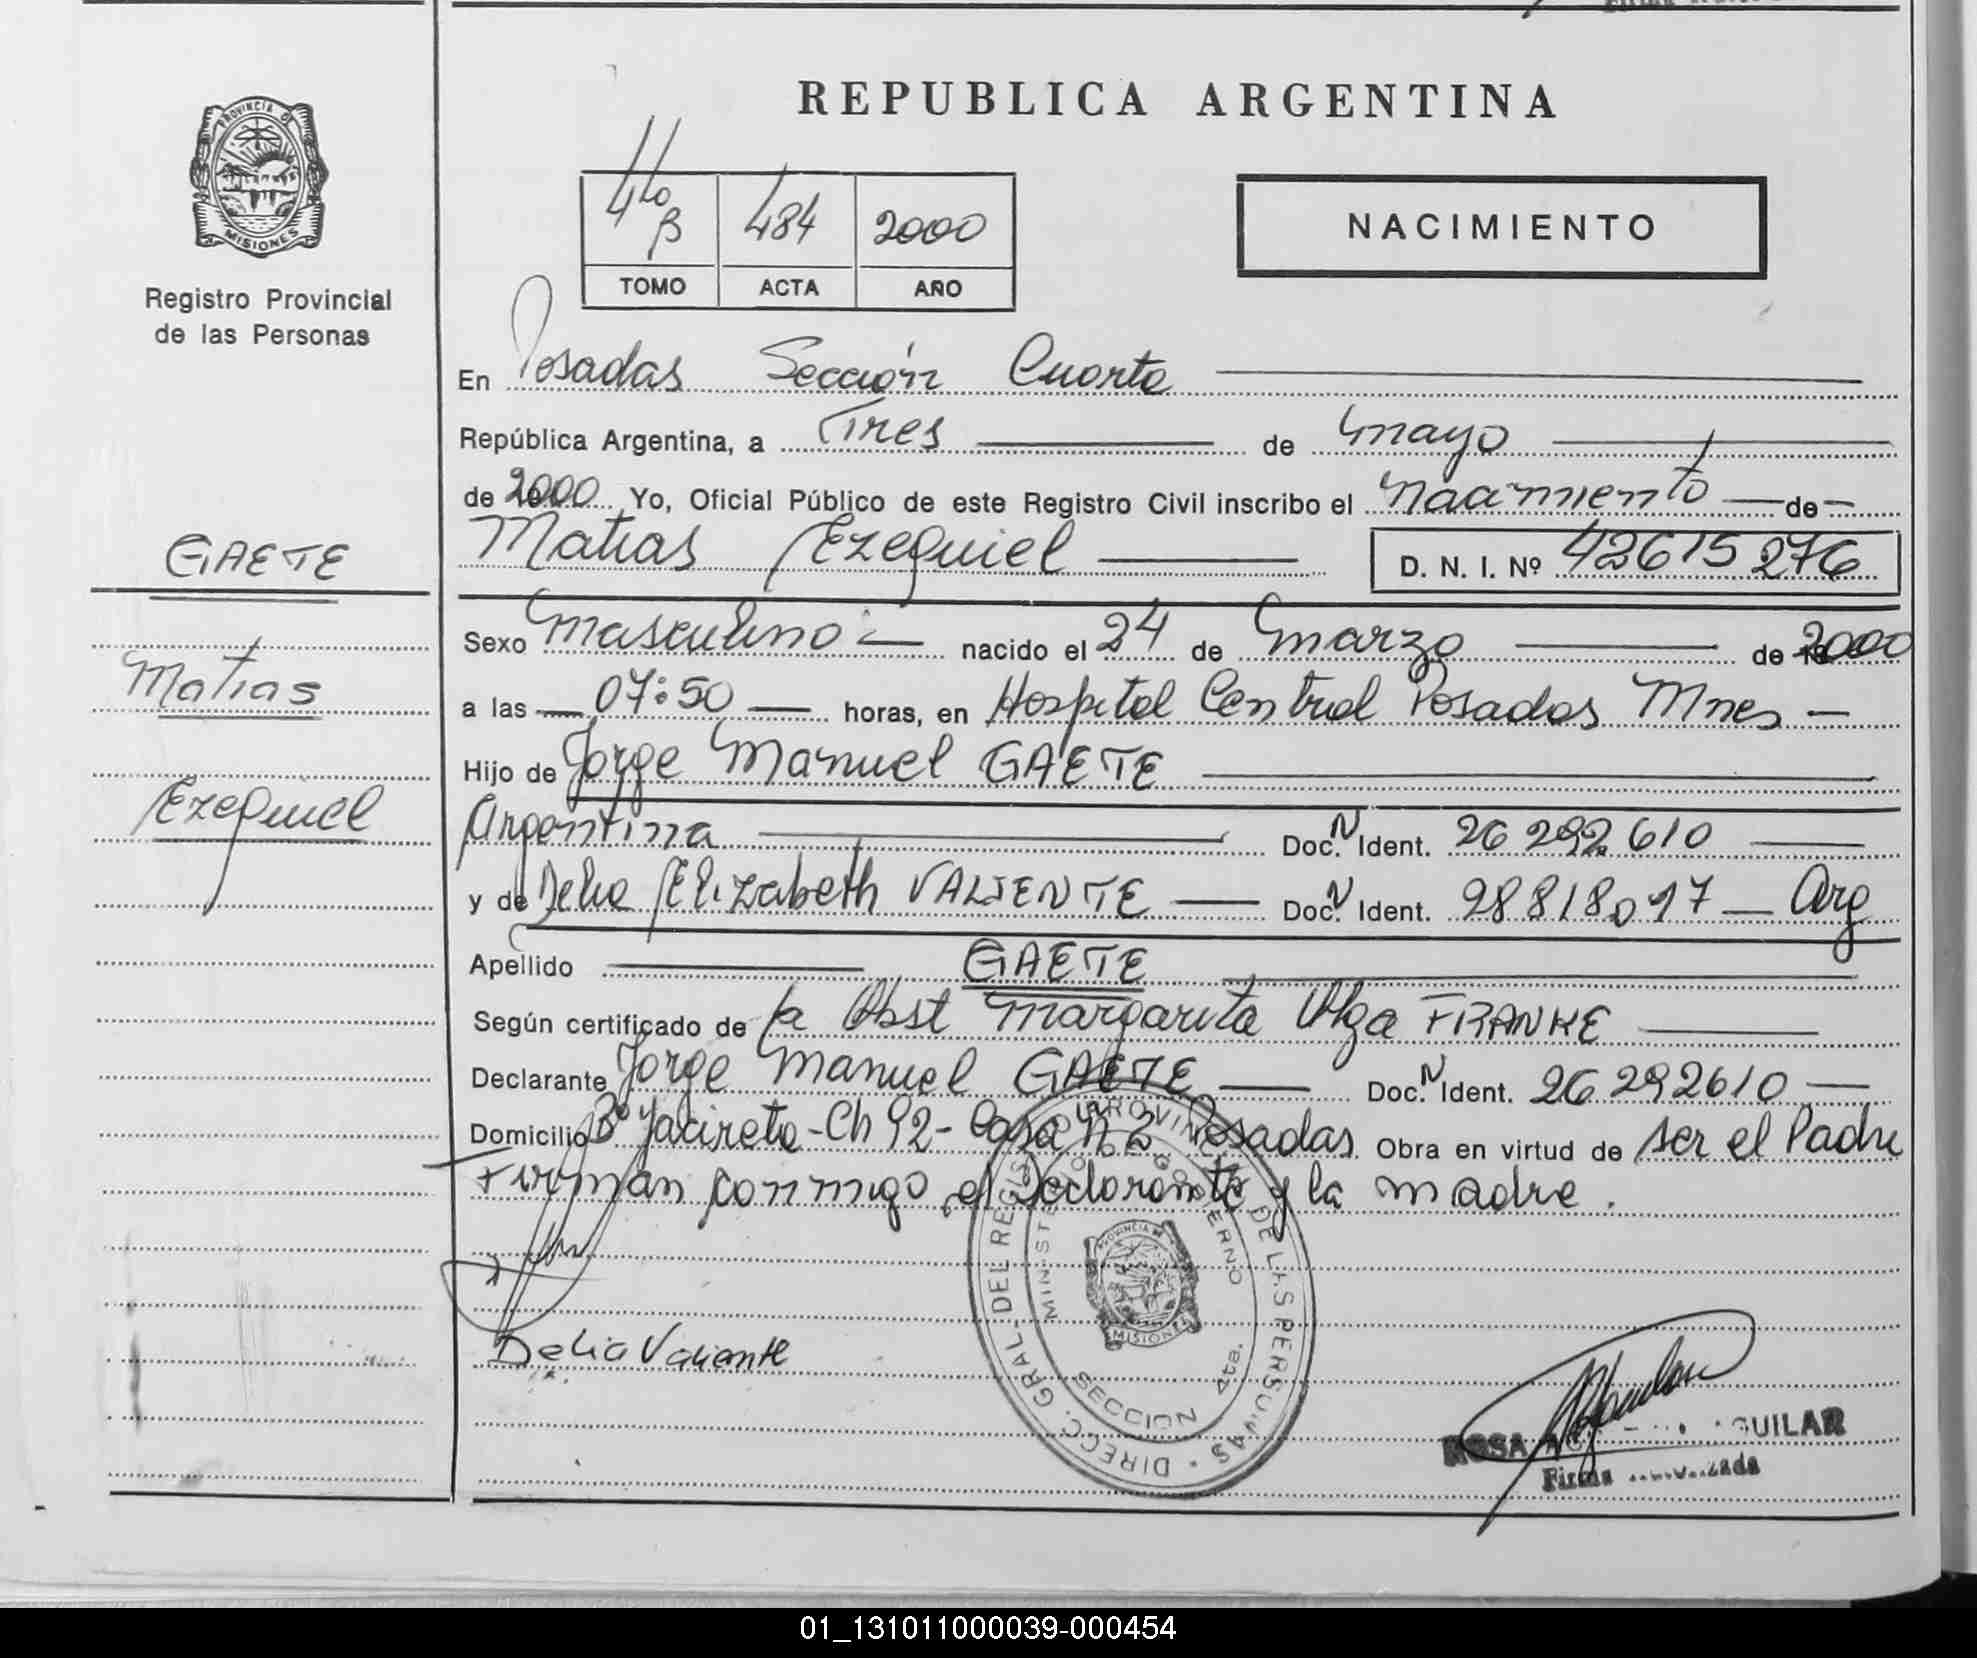 REPUBLICA ARGENTINA
PROVINCIA
MISIONES
Registro Provincial
de las Personas
4to B 484 2000
TOMO ACTA AÑO
NACIMIENTO
En Posadas Sección Cuarta
República Argentina, a Tres de mayo
de 2000 Yo, Oficial Público de este Registro Civil inscribo el nacimiento de
Matias Ezequiel D. N. I. Nº 42615276
GAETE
Matias
Ezequiel
Sexo masculino nacido el 24 de marzo de 2000
a las 07:50 horas, en Hospital Central Posadas Mnes
Hijo de Jorge Manuel GAETE
Argentina Doc. N Ident. 26 292 610
y de Delia Elizabeth VALIENTE Doc. N Ident. 28818017 Arg
Apellido GAETE
Según certificado de la Obst Margarita Olga FRANKE
Declarante Jorge Manuel GAETE Doc. N Ident. 26292610
Domicilio Bº Yacireta-Ch 92-Casa n 2 Posadas Obra en virtud de ser el Padre
Firman conmigo el Declarante y la madre.
Delia Valiente
DIRECC. GRAL. DEL REGISTRO PROVINCIAL DE LAS PERSONAS
MINISTERIO DE GOBIERNO
PROVINCIA DE
MISIONES
SECCION 4ta.
ROSA AGUILAR
Firma
01_131011000039-000454